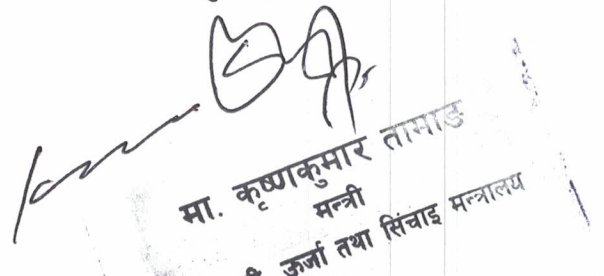 मा. कृष्णकुमार तामाङ
मन्त्री
ऊर्जा तथा सिंचाइ मन्त्रालय